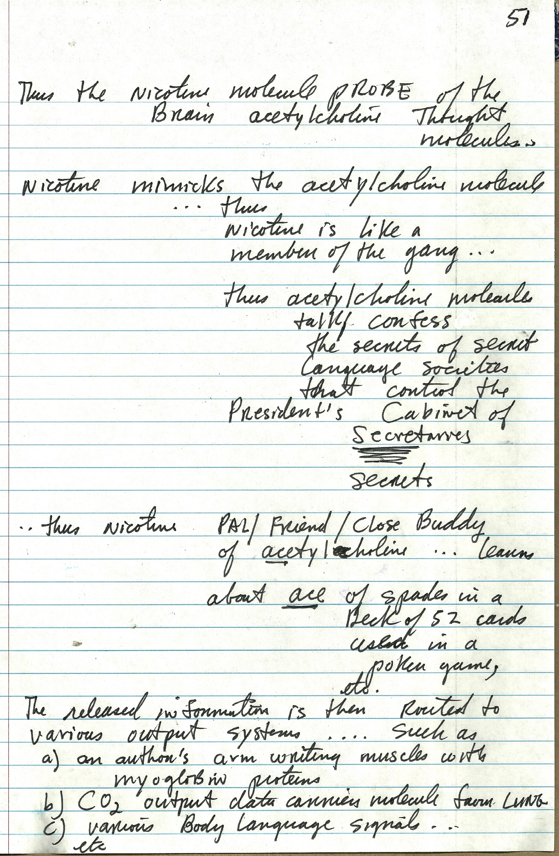 51
Thus the Nicotine molecule PROBE of the
Brain acetylcholine Thought
molecules..
Nicotine mimicks the acetylcholine molecule
... thus
Nicotine is like a
member of the gang ...
thus acetylcholine molecules
talk/ confess
the secrets of secret
Language societies
that control the
President's Cabinet of
Secretaries
secrets
.. thus Nicotine PAL/ Friend / Close Buddy
of acetylcholine ... learns
about ace of spades in a
Deck of 52 cards
used in a
poker game,
etc.
The released information is then Routed to
various output systems .... Such as
a) an author's arm writing muscles with
myoglobin proteins
b) CO2 output data carrier molecule from LUNG
c) various Body Language signals ...
etc